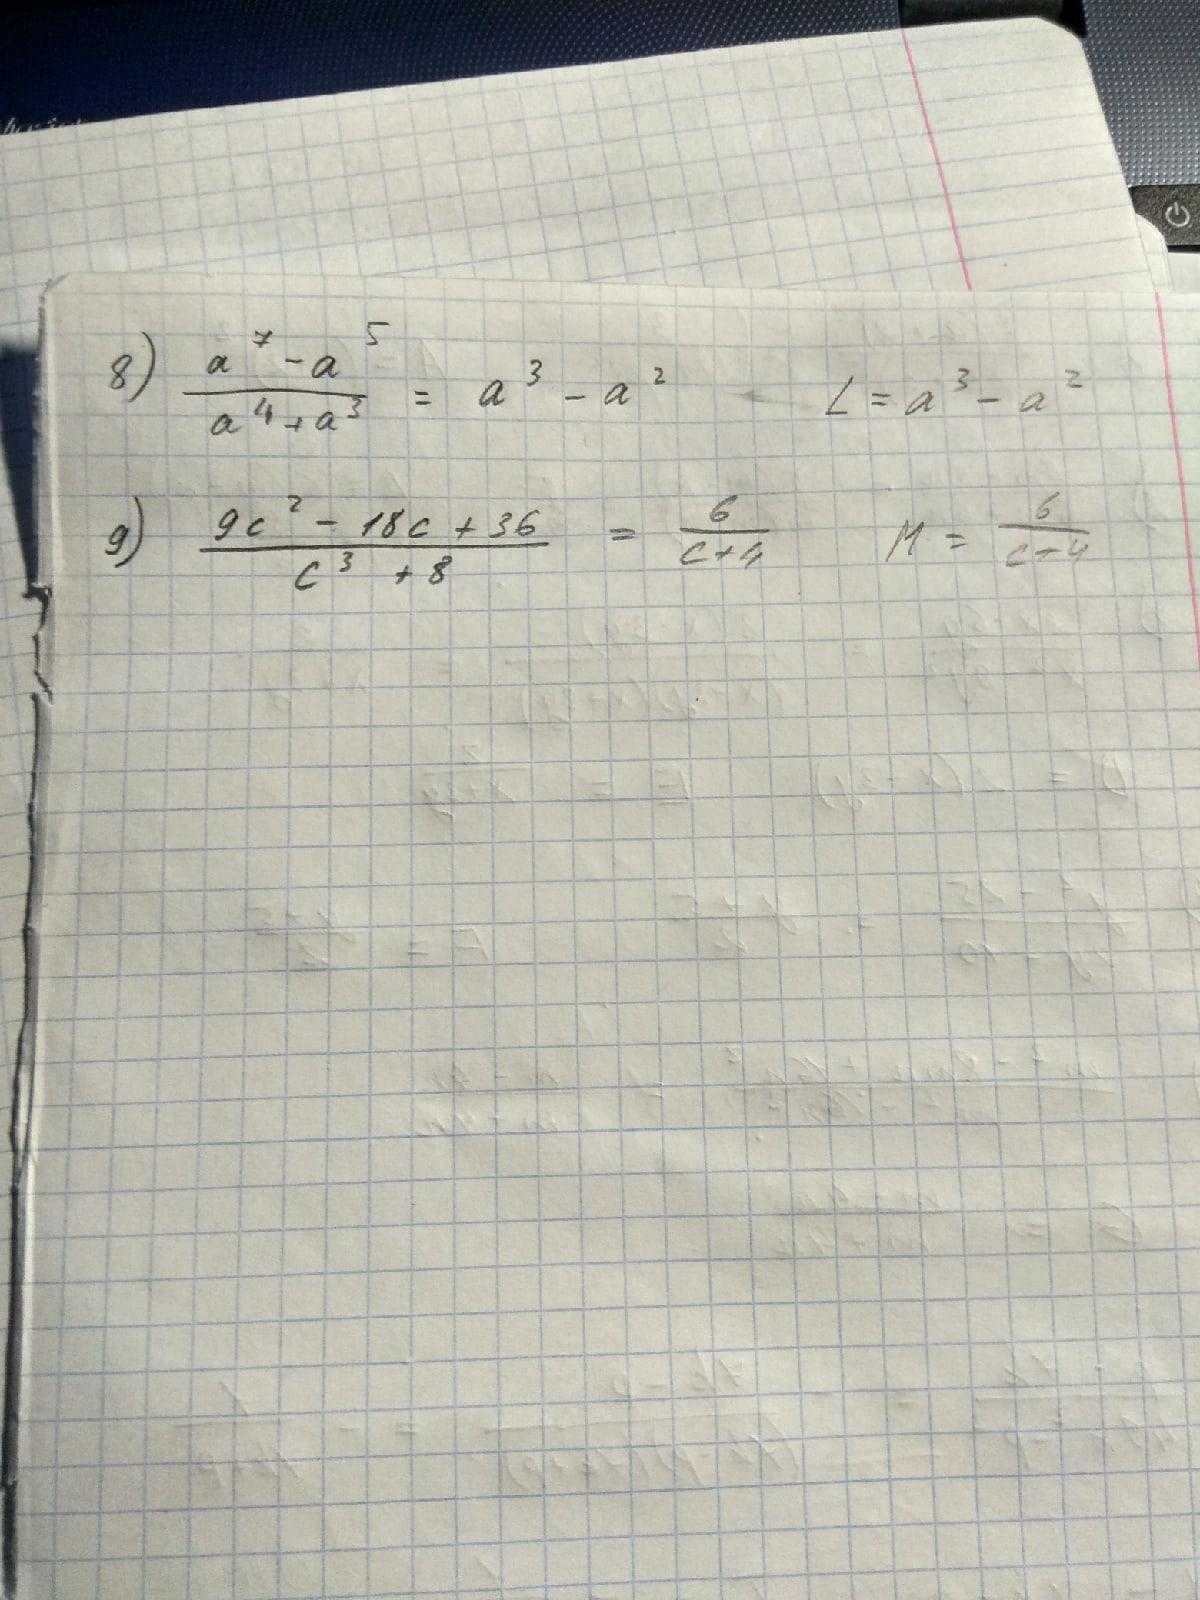 8) (a^7 - a^5)/(a^4 + a^3) = a^3 - a^2 L = a^3 - a^2
9) (9c^2 - 18c + 36)/(c^3 + 8) = 6/(c+4) M = 6/(c+4)